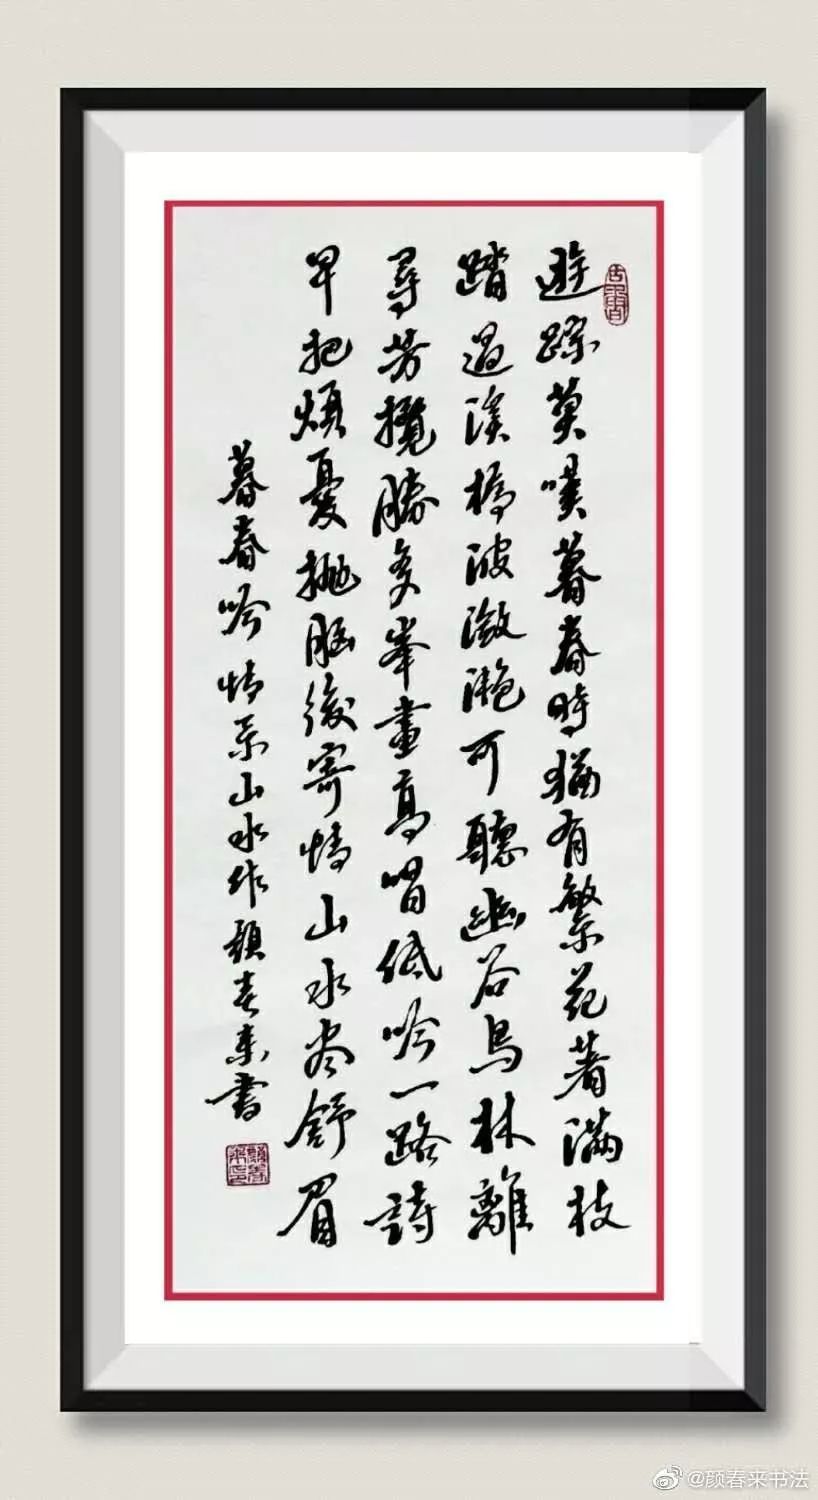 遊踪莫嘆暮春時猶有繁花著滿枝
踏過溪橋波瀲灔可聽幽谷鳥林離
尋芳攬勝多峯畫高唱低吟一路詩
早把煩憂拋腦後寄情山水尽舒眉
暮春吟情系山水作顏春來書
@颜春来书法